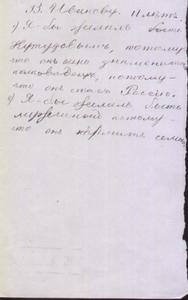 В. Иванову. 11 лѣтъ.
1) Я-бы желалъ быть
Кутузовымъ, потому
что онъ былъ знаменитый
полководецъ, потому-
что онъ спасъ Россію.
2) Я-бы желалъ быть
мужчиной потому-
что онъ кормитъ семью.